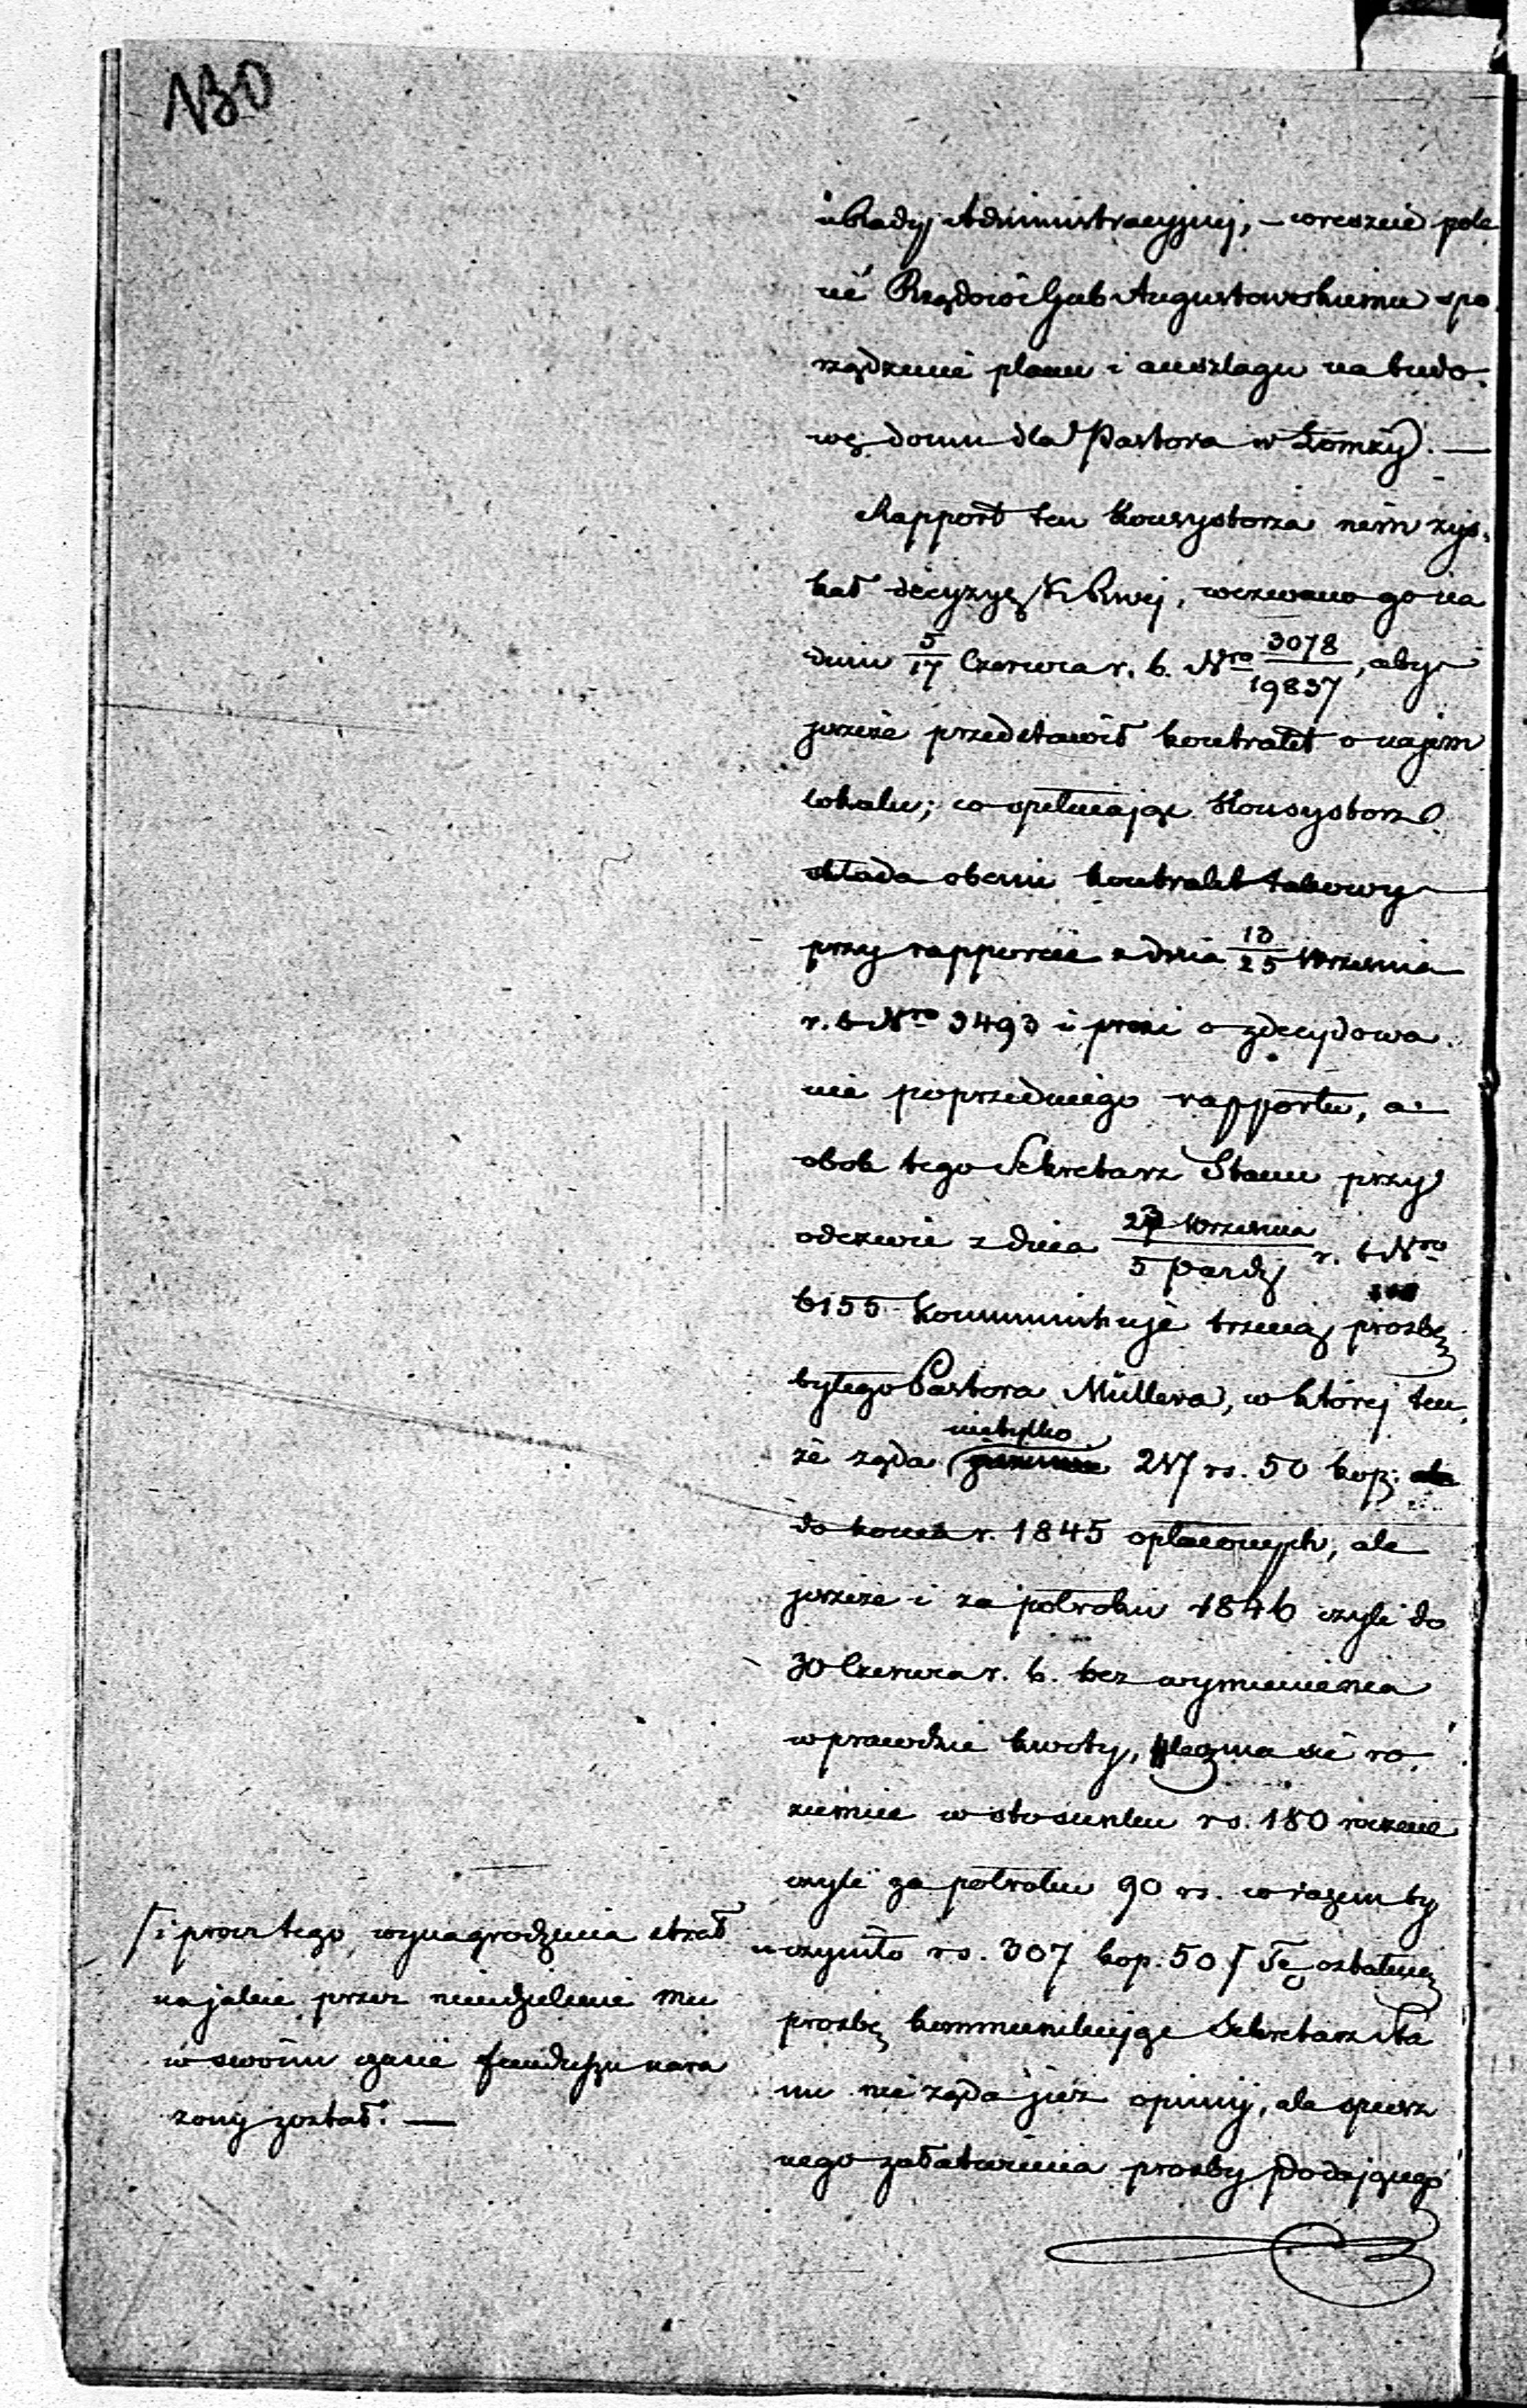 130
u Rady Administracyjnej, – wreszcie pole
cić Rządowi Gub Augustowskiemu spo
rządzenie planu i anszlagu na budo-
wę domu dla Pastora w Łomży. —
Rapport ten Konsystorza nim zys-
kał decyzyę K Rwej, wezwano go na
dniu 5/17 Czerwca r. b. Nro 3078/19837, aby
jeszcze przedstawił kontrakt o najem
lokalu; co spełniając Konsystorz
składa obecnie kontrakt takowy
przy rapporcie z dnia 13/25 Września
r. b Nro 3493 i prosi o zdecydowa-
nie poprzedniego rapportu, a
obok tego Sekretarz Stanu przy
odezwie z dnia 23 Września/5 Paźdz r. b Nro
6155 kommunikuje trzecią prośbę
byłego Pastora Müllera, w której ten-
że żąda nietylko 217 rs. 50 kop.
do końca r. 1845 opłaconych, ale
jeszcze i za półroku 1846 czyli do
30 Czerwca r. b. bez wymienienia
wprawdzie kwoty, lecz ma się ro-
zumieć w stosunku rs. 180 rocznie
czyli za półroku 90 rs. co razem by
uczyniło rs. 307 kop. 50 ſ Tę ostatnią
prośbę kommunikując Sekretarz Sta
nu nie żąda już opinij, ale spiesz
nego załatwienia prośby Podającego
ſ i prócz tego, wynagrodzenia strat
na jakie przez nieudzielenie mu
w swoim czasie funduszu nara
żony został. —